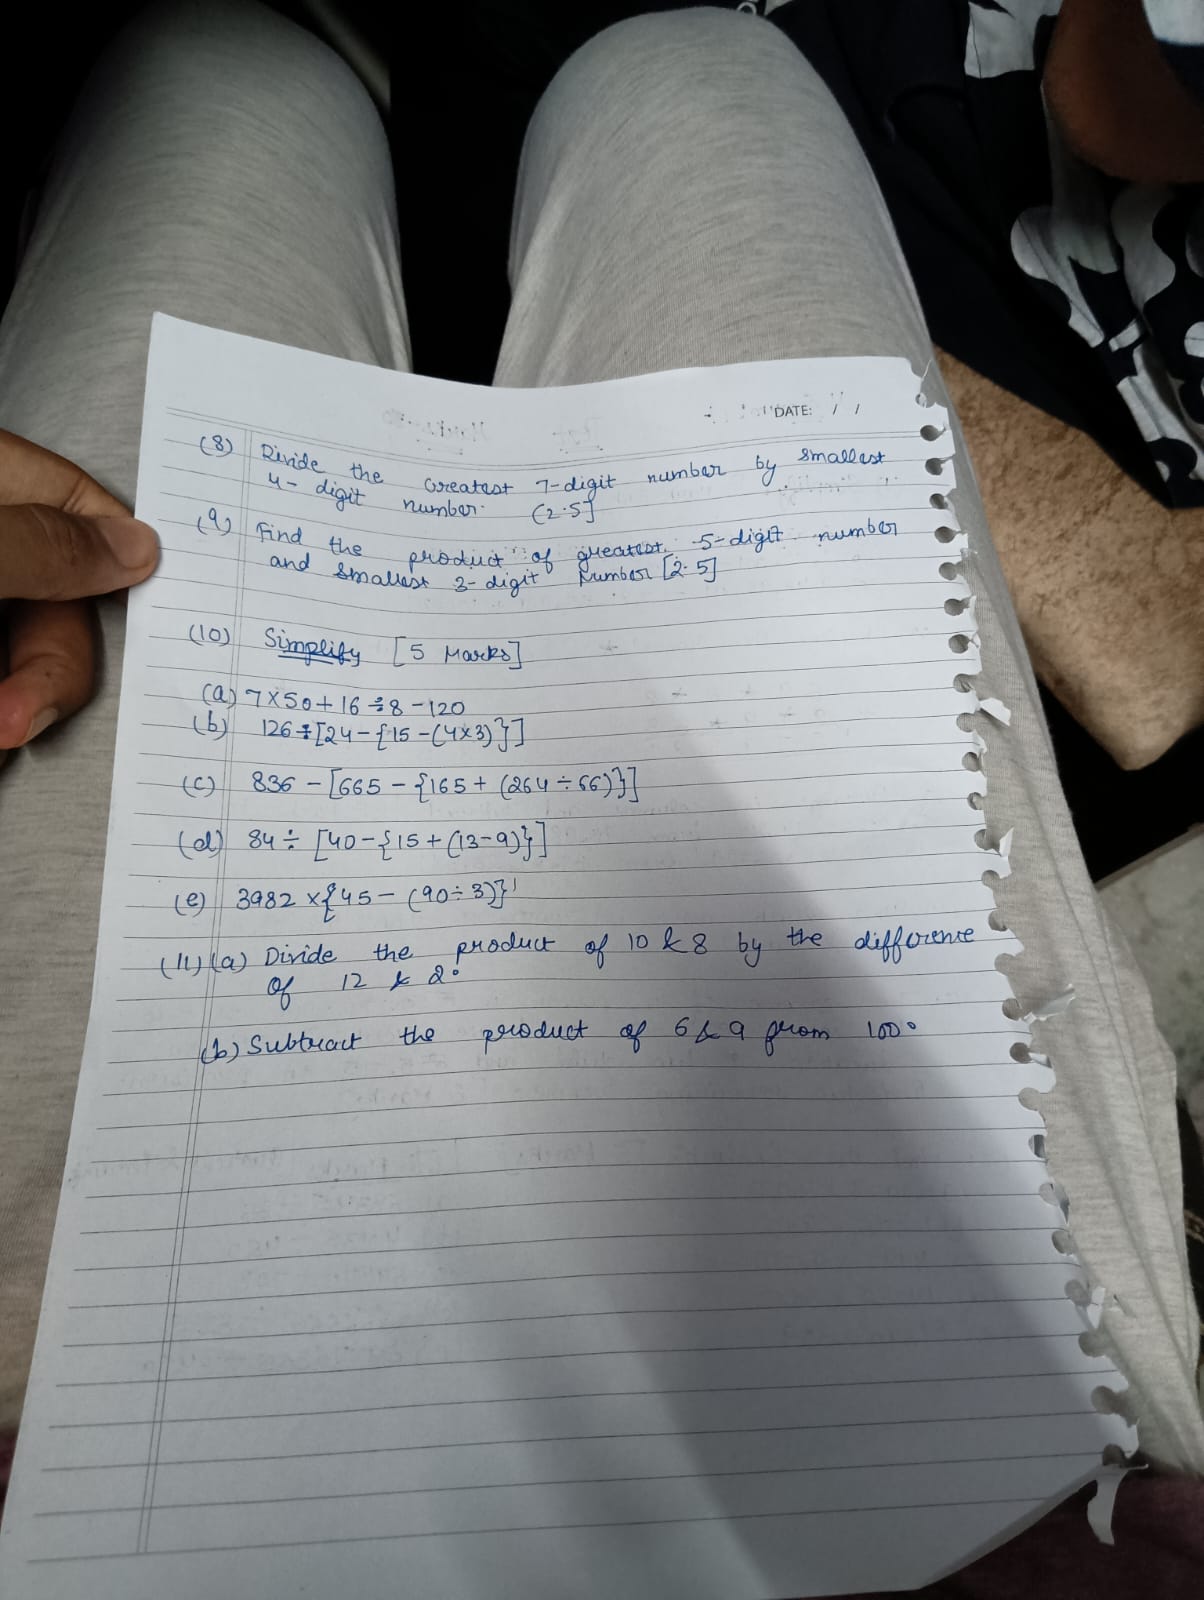 DATE: / /
(8) Divide the Greatest 7-digit number by smallest
4- digit number. (2.5]
(9) Find the product of greatest 5-digit number
and smallest 3-digit number [2.5]
(10) Simplify [5 Marks]
(a) 7×50+16÷8-120
(b) 126÷[24-{15-(4×3)}]
(c) 836-[665-{165+(264÷66)}]
(d) 84÷[40-{15+(13-9)}]
(e) 3982×{45-(90÷3)}
(11) (a) Divide the product of 10 & 8 by the difference
of 12 & 2.
(b) Subtract the product of 6 & 9 from 100.